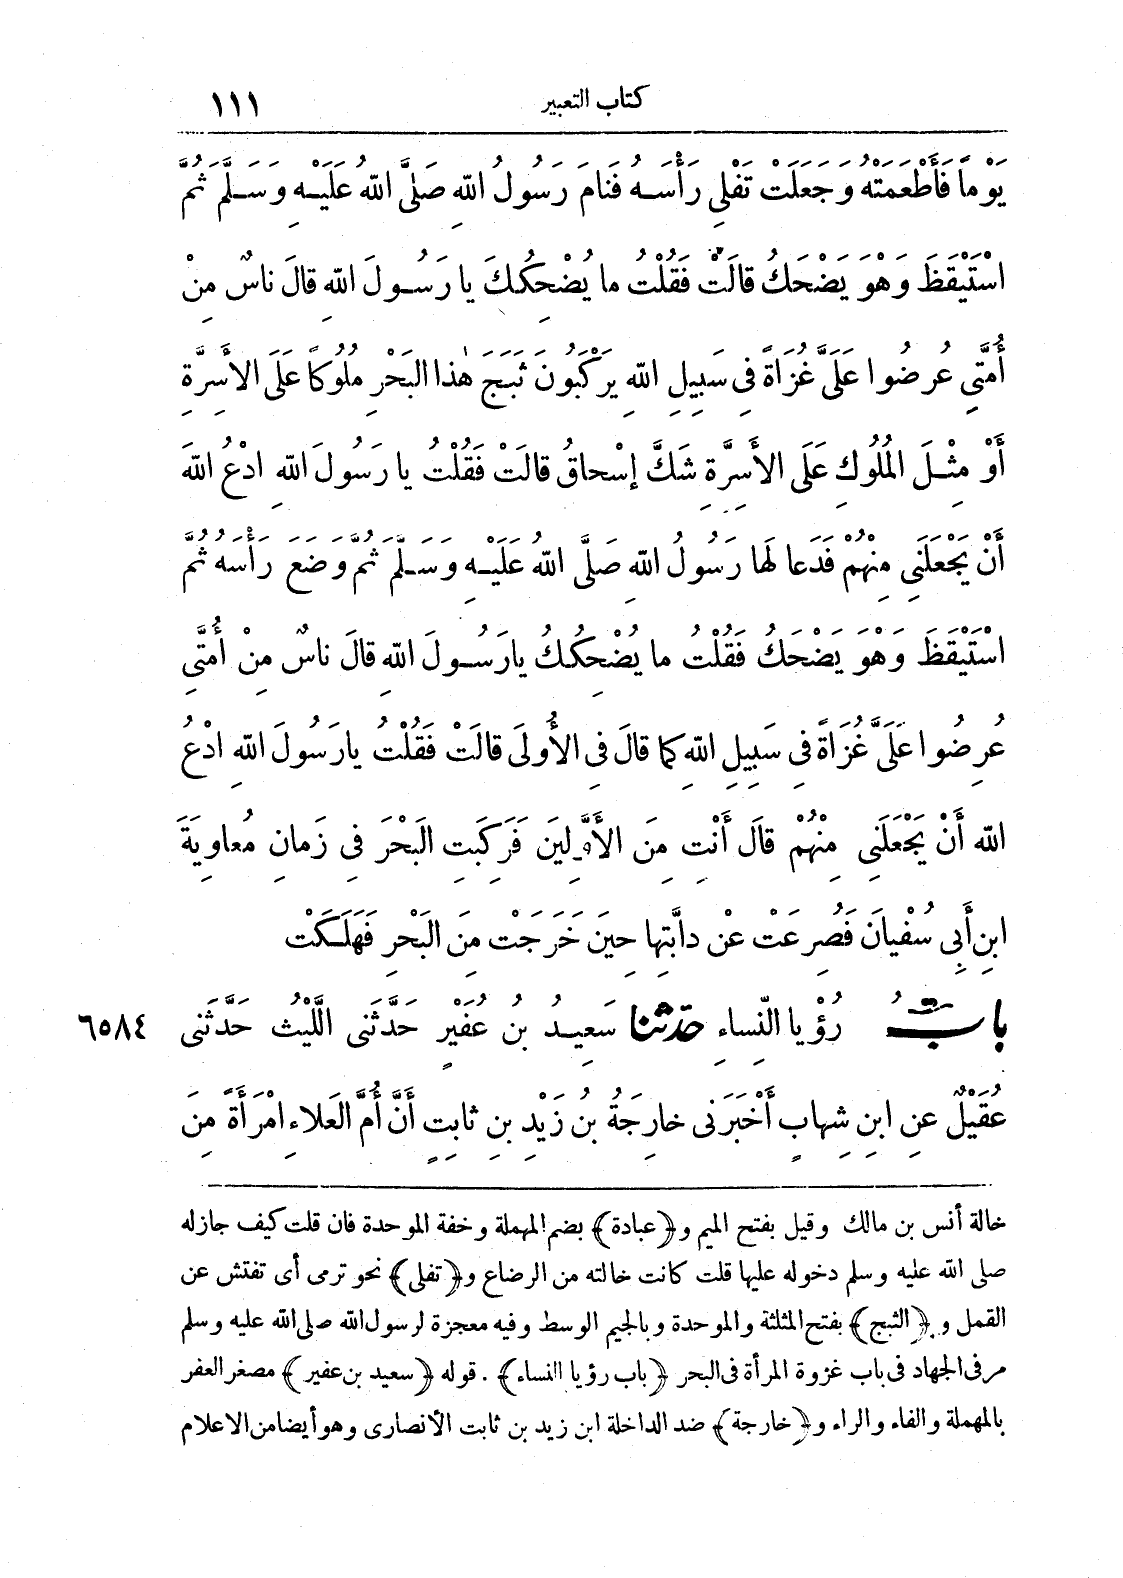 كتاب التعبير ١١١
يَوْماً فَأَطْعَمَتْهُ وَجَعَلَتْ تَفْلِي رَأْسَهُ فَنَامَ رَسُولُ اللهِ صَلَّى اللهُ عَلَيْهِ وَسَلَّمَ ثُمَّ
اسْتَيْقَظَ وَهْوَ يَضْحَكُ قالَتْ فَقُلْتُ ما يُضْحِكُكَ يا رَسُولَ اللهِ قالَ ناسٌ مِنْ
أُمَّتِي عُرِضُوا عَلَىَّ غُزَاةً فِى سَبِيلِ اللهِ يَرْكَبُونَ ثَبَجَ هٰذا البَحْرِ مُلُوكاً عَلَى الأَسِرَّةِ
أَوْ مِثْلَ المُلُوكِ عَلَى الأَسِرَّةِ شَكَّ إِسْحاقُ قالَتْ فَقُلْتُ يا رَسُولَ اللهِ ادْعُ اللهَ
أَنْ يَجْعَلَنِى مِنْهُمْ فَدَعا لَها رَسُولُ اللهِ صَلَّى اللهُ عَلَيْهِ وَسَلَّمَ ثُمَّ وَضَعَ رَأْسَهُ ثُمَّ
اسْتَيْقَظَ وَهْوَ يَضْحَكُ فَقُلْتُ ما يُضْحِكُكَ يارَسُولَ اللهِ قالَ ناسٌ مِنْ أُمَّتِى
عُرِضُوا عَلَىَّ غُزَاةً فِى سَبِيلِ اللهِ كما قالَ فِى الأُولَى قالَتْ فَقُلْتُ يارَسُولَ اللهِ ادْعُ
اللهَ أَنْ يَجْعَلَنِى مِنْهُمْ قالَ أَنْتِ مِنَ الأَوَّلِينَ فَرَكِبَتِ البَحْرَ فِى زَمانِ مُعاوِيَةَ
ابنِ أَبِى سُفْيانَ فَصُرِعَتْ عَنْ دابَّتِها حِينَ خَرَجَتْ مِنَ البَحْرِ فَهَلَكَتْ
بابُ رُؤْيا النِّساءِ حَدَّثَنا سَعِيدُ بنُ عُفَيْرٍ حَدَّثَنى اللَّيْثُ حَدَّثَنى ٦٥٨٤
عُقَيْلٌ عنِ ابنِ شِهابٍ أَخْبَرَنى خارِجَةُ بنُ زَيْدِ بنِ ثابِتٍ أَنَّ أُمَّ العَلاءِ امْرَأَةً مِنَ
خالة أنس بن مالك وقيل بفتح الميم و﴿عبادة﴾ بضم المهملة وخفة الموحدة فان قلت كيف جازله
صلى الله عليه وسلم دخوله عليها قلت كانت خالته من الرضاع و﴿تفلى﴾ نحو ترمى أى تفتش عن
القمل و﴿الثبج﴾ بفتح المثلثة والموحدة وبالجيم الوسط وفيه معجزة لرسول الله صلى الله عليه وسلم
مر فى الجهاد فى باب غزوة المرأة فى البحر ﴿باب رؤيا النساء﴾. قوله ﴿سعيد بن عفير﴾ مصغر العفر
بالمهملة والفاء والراء و﴿خارجة﴾ ضد الداخلة ابن زيد بن ثابت الأنصارى وهو أيضا من الاعلام